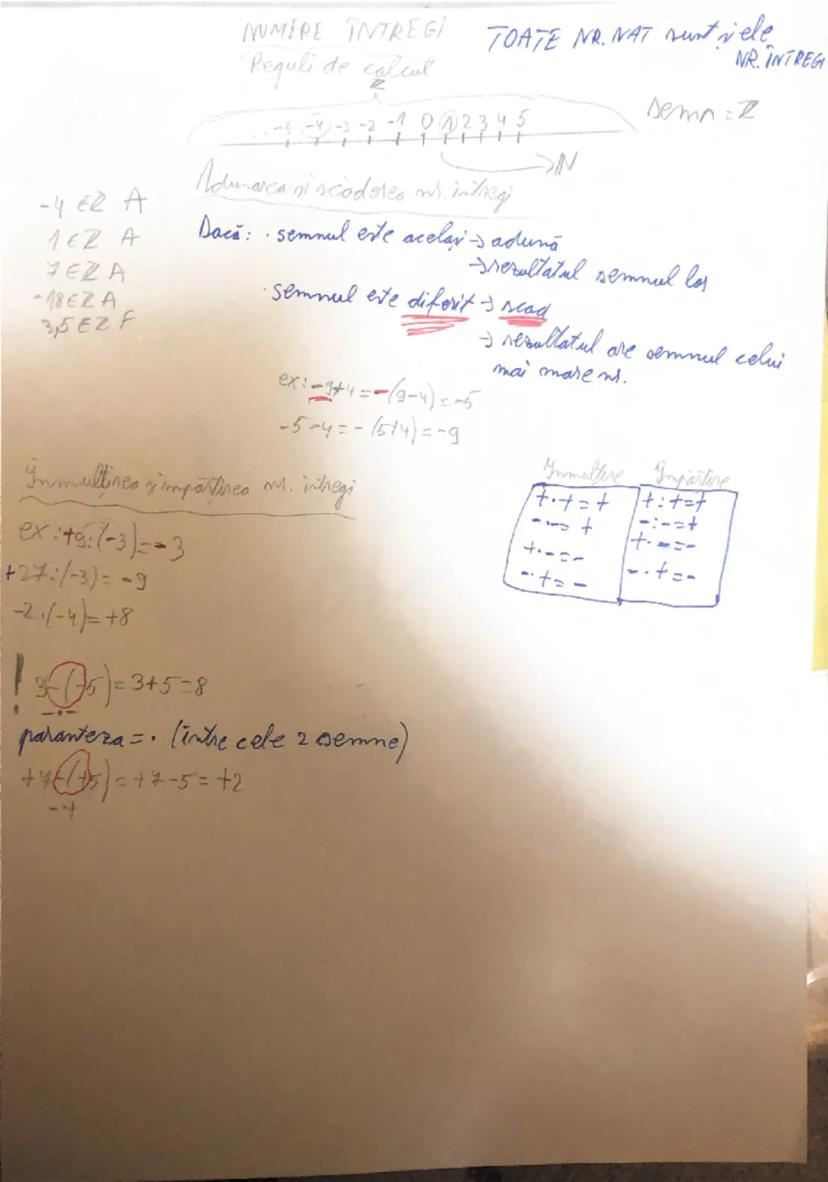 NUMERE ÎNTREGI
TOATE NR. NAT sunt și ele
NR. ÎNTREGI
Reguli de calcul
Z
semn = Z
... -5 -4 -3 -2 -1 0 1 2 3 4 5
N
Adunarea și scăderea nr. întregi
-4 ∈ Z A
1 ∈ Z A
7 ∈ Z A
-18 ∈ Z A
3,5 ∈ Z F
Dacă: · semnul este același → adună
→ rezultatul semnul lor
· semnul este diferit → scad
→ rezultatul are semnul celui
mai mare nr.
ex: -9+4 = -(9-4) = -5
-5-4 = -(5+4) = -9
Înmulțirea și împărțirea nr. întregi
ex: +9:(-3) = -3
+27:(-3) = -9
-2·(-4) = +8
Înmulțire Împărțire
+·+=+ +:+=+
-·-=+ -:-=+
+·-=- +·-=-
-·+=- -·+=-
! 3-(-5) = 3+5=8
-·-
paranteza = · (între cele 2 semne)
+7-(+5) = +7-5 = +2
-·+